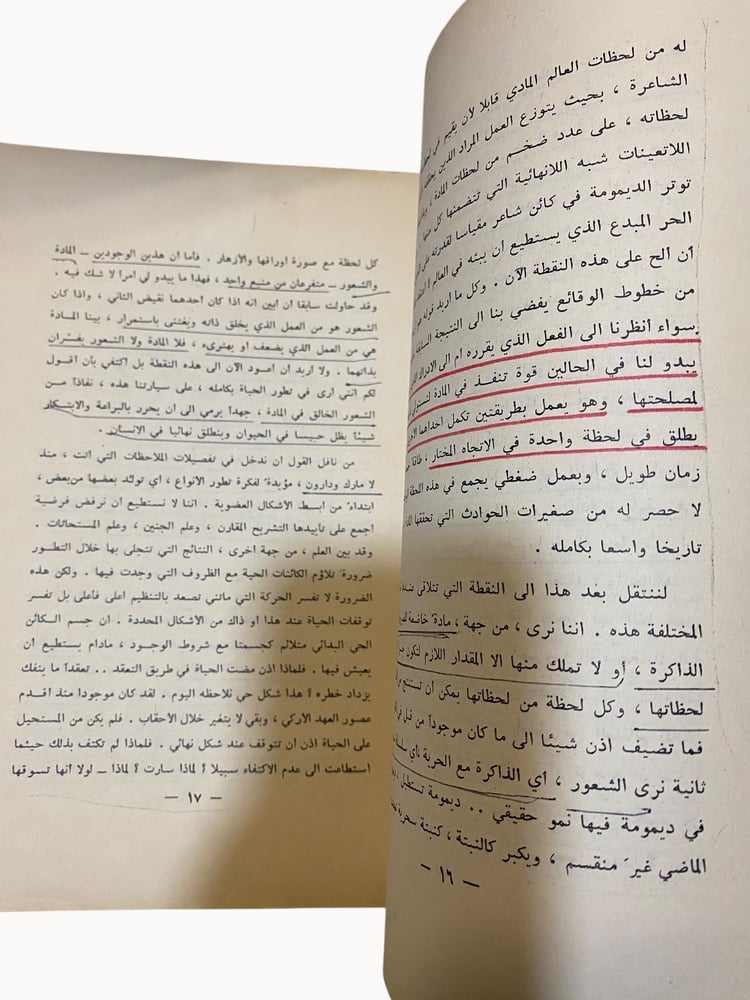 له من لحظات العالم المادي قابلا لأن يقيم في
الشاعرة ، بحيث يتوزع العمل المراد الذين
لحظاته ، على عدد ضخم من لحظات المادة ،
اللاتعينات شبه اللانهائية التي تتضمنها كل منها
توتر الديمومة في كائن شاعر مقياسا لقدرته على
الحر المبدع الذي يستطيع ان يبثه في العالم ؟
ان الح على هذه النقطة الآن . وكل ما اريد قوله هو
من خطوط الوقائع يفضي بنا الى النتيجة السابقة
سواء انظرنا الى الفعل الذي يقرره ام الى الادراك
يبدو لنا في الحالين قوة تنفذ في المادة لتستولي
لمصلحتها ، وهو يعمل بطريقتين تكمل احداهما الاخرى
يطلق في لحظة واحدة في الاتجاه المختار ، طاقة
زمان طويل ، وبعمل ضغطي يجمع في هذه اللحظة
لا حصر له من صغيرات الحوادث التي تحققها
تاريخا واسعا بكامله .
لننتقل بعد هذا الى النقطة التي تتلاقى
المختلفة هذه . اننا نرى ، من جهة ، مادة خاضعة
الذاكرة ، او لا تملك منها الا المقدار اللازم لتكون
لحظاتها ، وكل لحظة من لحظاتها يمكن ان تستنتج
فما تضيف اذن شيئا الى ما كان موجودا من قبل
ثانية نرى الشعور ، اي الذاكرة مع الحرية ، اي
في ديمومة فيها نمو حقيقي .. ديمومة تستطيل ،
الماضي غير منقسم ، ويكبر كالنبتة ، كنبتة سحرية
— ١٦ —
كل لحظة مع صورة اوراقها والأزهار . فاما ان هذين الوجودين — المادة
والشعور — متفرعان من منبع واحد ، فهذا ما يبدو لي امرا لا شك فيه .
وقد حاولت سابقا ان ابين انه اذا كان احدهما نقيض الثاني ، واذا كان
الشعور هو من العمل الذي يخلق ذاته ويغتني باستمرار ، بينا المادة
هي من العمل الذي يضعف او يهترىء ، فلا المادة ولا الشعور يفسران
بذاتهما . ولا اريد ان اعود الآن الى هذه النقطة بل اكتفي بأن اقول
لكم انني ارى في تطور الحياة بكامله ، على سيارتنا هذه ، نفاذا من
الشعور الخالق في المادة ، جهدا يرمي الى ان يحرر بالبراعة والابتكار
شيئا يظل حبيسا في الحيوان وينطلق نهائيا في الانسان .
من نافل القول ان ندخل في تفصيلات الملاحظات التي اتت ، منذ
لا مارك ودارون ، مؤيدة لفكرة تطور الأنواع ، اي تولد بعضها من بعض ،
ابتداء من ابسط الأشكال العضوية . اننا لا نستطيع ان نرفض فرضية
اجمع على تأييدها التشريح المقارن ، وعلم الجنين ، وعلم المستحاثات .
وقد بين العلم ، من جهة اخرى ، النتائج التي تتجلى بها خلال التطور
ضرورة تلاؤم الكائنات الحية مع الظروف التي وجدت فيها . ولكن هذه
الضرورة لا تفسر الحركة التي ماتني تصعد بالتنظيم اعلى فأعلى بل تفسر
توقفات الحياة عند هذا او ذاك من الأشكال المحددة . ان جسم الكائن
الحي البدائي متلائم كجسمنا مع شروط الوجود ، مادام يستطيع ان
يعيش فيها . فلماذا اذن مضت الحياة في طريق التعقد .. تعقدا ما ينفك
يزداد خطره ؟ هذا شكل حي نلاحظه اليوم . لقد كان موجودا منذ اقدم
عصور العهد الأركي ، وبقي لا يتغير خلال الأحقاب . فلم يكن من المستحيل
على الحياة اذن ان تتوقف عند شكل نهائي . فلماذا لم تكتف بذلك حيثما
استطاعت الى عدم الاكتفاء سبيلا ؟ لماذا سارت ؟ لماذا — لولا انها تسوقها
— ١٧ —